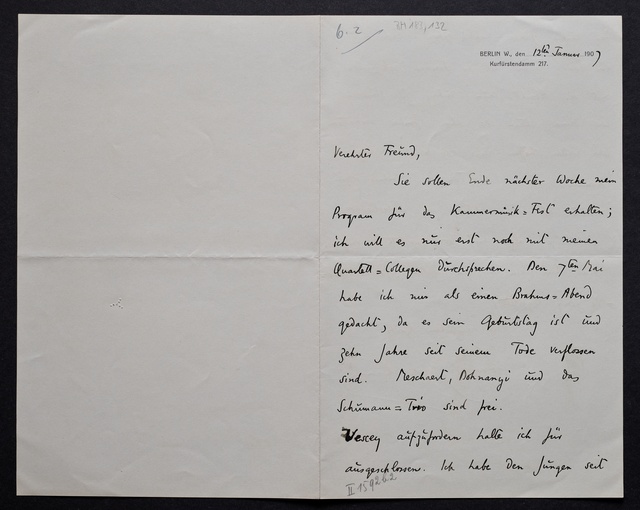 6.2
BH 181, 132
BERLIN W., den 12ten Januar 1907
Kurfürstendamm 217.
Verehrter Freund,
Sie sollen Ende nächster Woche mein
Program für das Kammermusik=Fest erhalten;
ich will es nur erst noch mit meinen
Quartett=Collegen durchsprechen. Den 7ten Mai
habe ich mir als einen Brahms=Abend
gedacht, da es sein Geburtstag ist und
zehn Jahre seit seinem Tode verflossen
sind. Meschaert, Dohnanyi und das
Schumann=Trio sind frei.
Vescey aufzufordern halte ich für
ausgeschlossen. Ich habe den Jungen seit